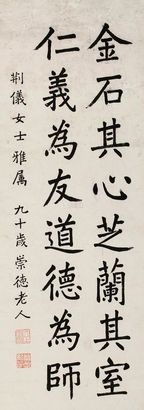 金石其心芝蘭其室
仁義為友道德為師
荆儀女士雅属 九十歲崇德老人